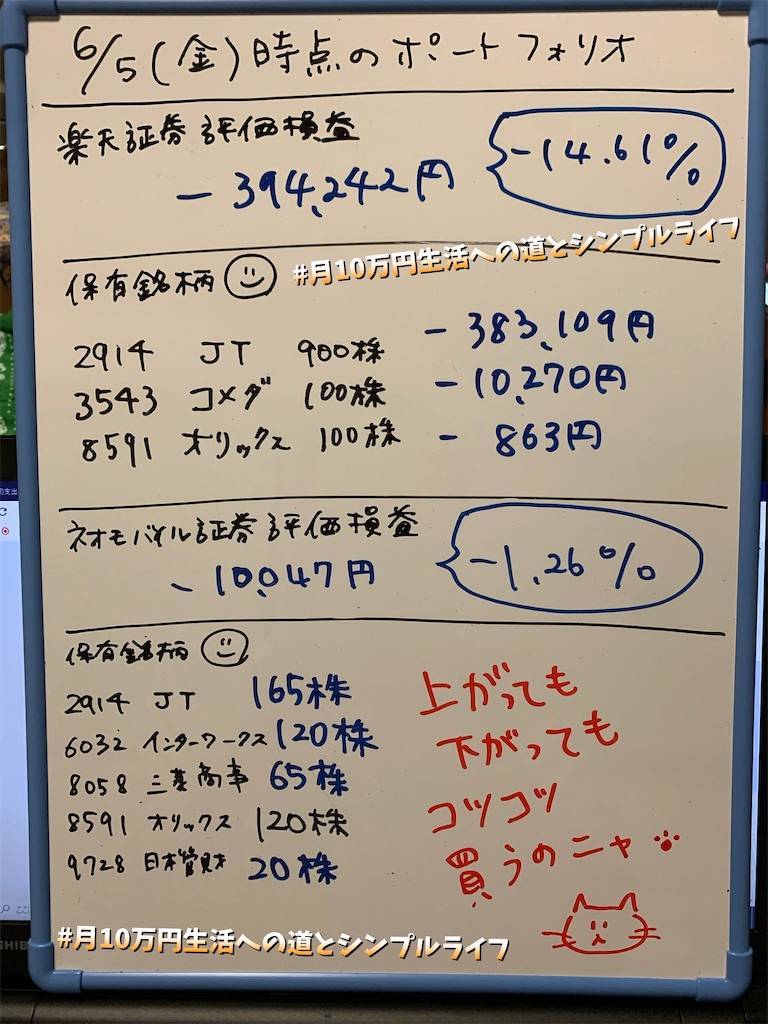 6/5(金)時点のポートフォリオ
楽天証券 評価損益
-394,242円
-14.61%
#月10万円生活への道とシンプルライフ
保有銘柄
2914 JT 900株 -383,109円
3543 コメダ 100株 -10,270円
8591 オリックス 100株 -863円
ネオモバイル証券 評価損益
-10,047円
-1.26%
保有銘柄
2914 JT 165株
6032 インターワークス 120株
8058 三菱商事 65株
8591 オリックス 120株
9728 日本管財 20株
上がっても
下がっても
コツコツ
買うのニャ
#月10万円生活への道とシンプルライフ